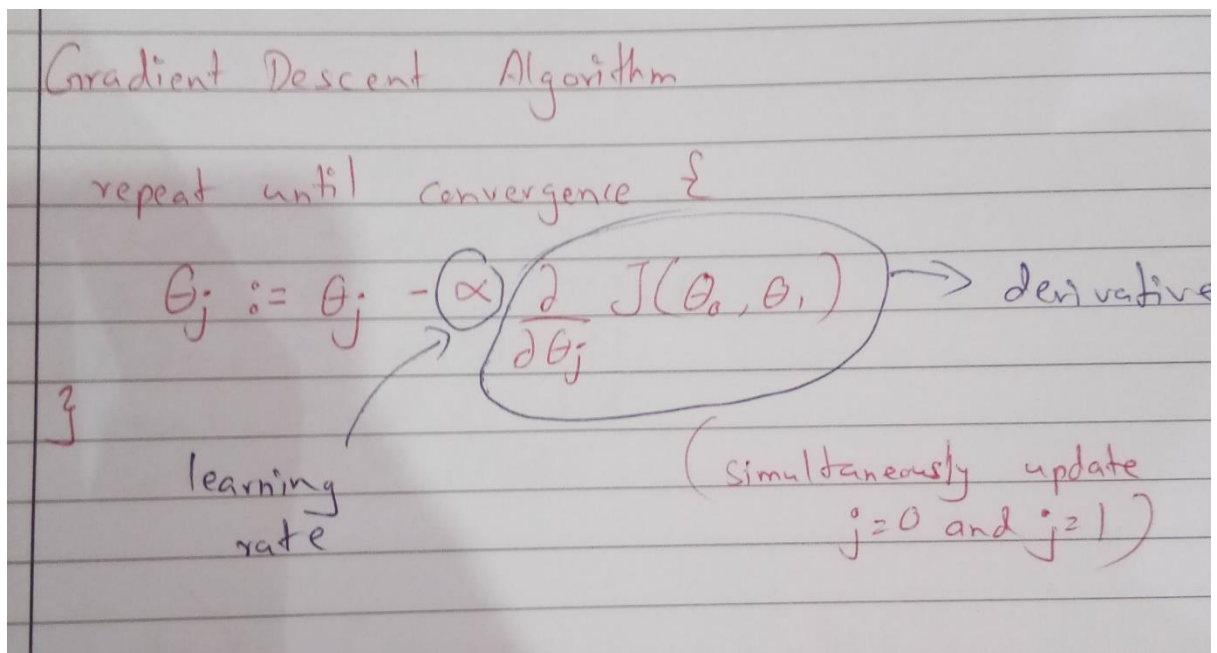 Gradient Descent Algorithm
repeat until convergence {
θj := θj - α ∂/∂θj J(θ₀, θ₁) → derivative
}
learning
rate
(simultaneously update
j=0 and j=1)